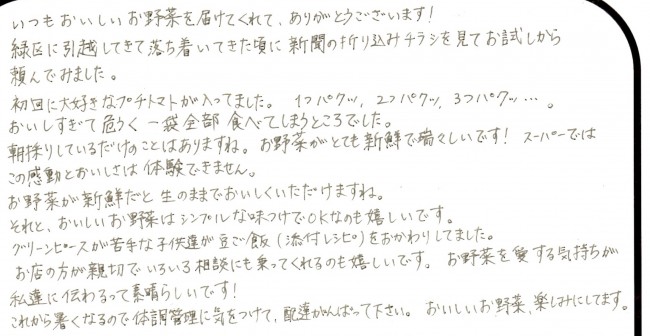 いつもおいしいお野菜を届けてくれて、ありがとうございます！
緑区に引越してきて落ち着いてきた頃に新聞の折り込みチラシを見てお試しから
頼んでみました。
初回に大好きなプチトマトが入ってました。 1つパクッ, 2つパクッ, 3つパクッ…。
おいしすぎて危うく一袋全部食べてしまうところでした。
朝採りしているだけのことはありますね。お野菜がとても新鮮で瑞々しいです！ スーパーでは
この感動とおいしさは体験できません。
お野菜が新鮮だと生のままでおいしくいただけますね。
それと、おいしいお野菜はシンプルな味つけでOKなのも嬉しいです。
グリーンピースが苦手な子供達が豆ご飯(添付レシピ)をおかわりしてました。
お店の方が親切でいろいろ相談にも乗ってくれるのも嬉しいです。 お野菜を愛する気持ちが
私達に伝わるって素晴らしいです！
これから暑くなるので体調管理に気をつけて、配達がんばって下さい。 おいしいお野菜、楽しみにしてます。